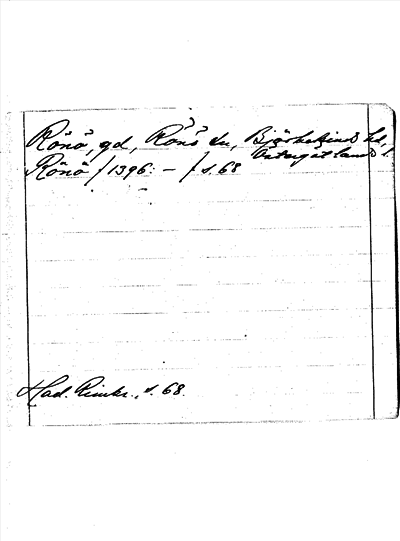 Rönö, gd, Rönö sn, Björkekinds hd,
Östergötlands l.
Rönö /1396: – / s. 68
Had. Rimkr., s. 68.